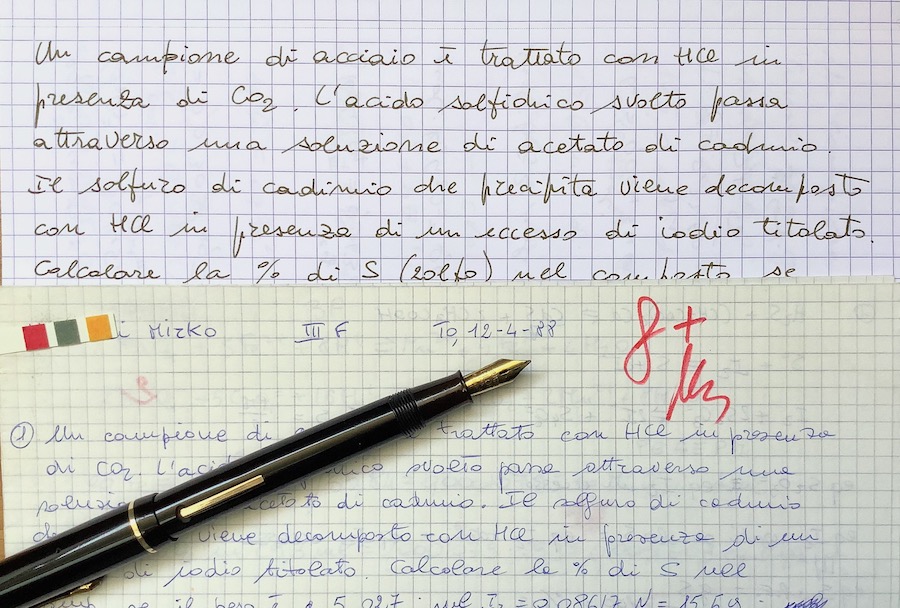 Un campione di acciaio è trattato con HCl in
presenza di CO2. L'acido solfidrico svolto passa
attraverso una soluzione di acetato di cadmio.
Il solfuro di cadmio che precipita viene decomposto
con HCl in presenza di un eccesso di iodio titolato.
Calcolare la % di S (zolfo) nel composto se
i Mirko III F To, 12-4-88
8+
① Un campione di trattato con HCl in presenza
di CO2. L'acid svolto passa attraverso una
soluzio acetato di cadmio. Il solfuro di cadmio
viene decomposto con HCl in presenza di un
di iodio titolato. Calcolare la % di S nell
se il peso è 5,027; nel I2 = 0,08617 N = 15,59